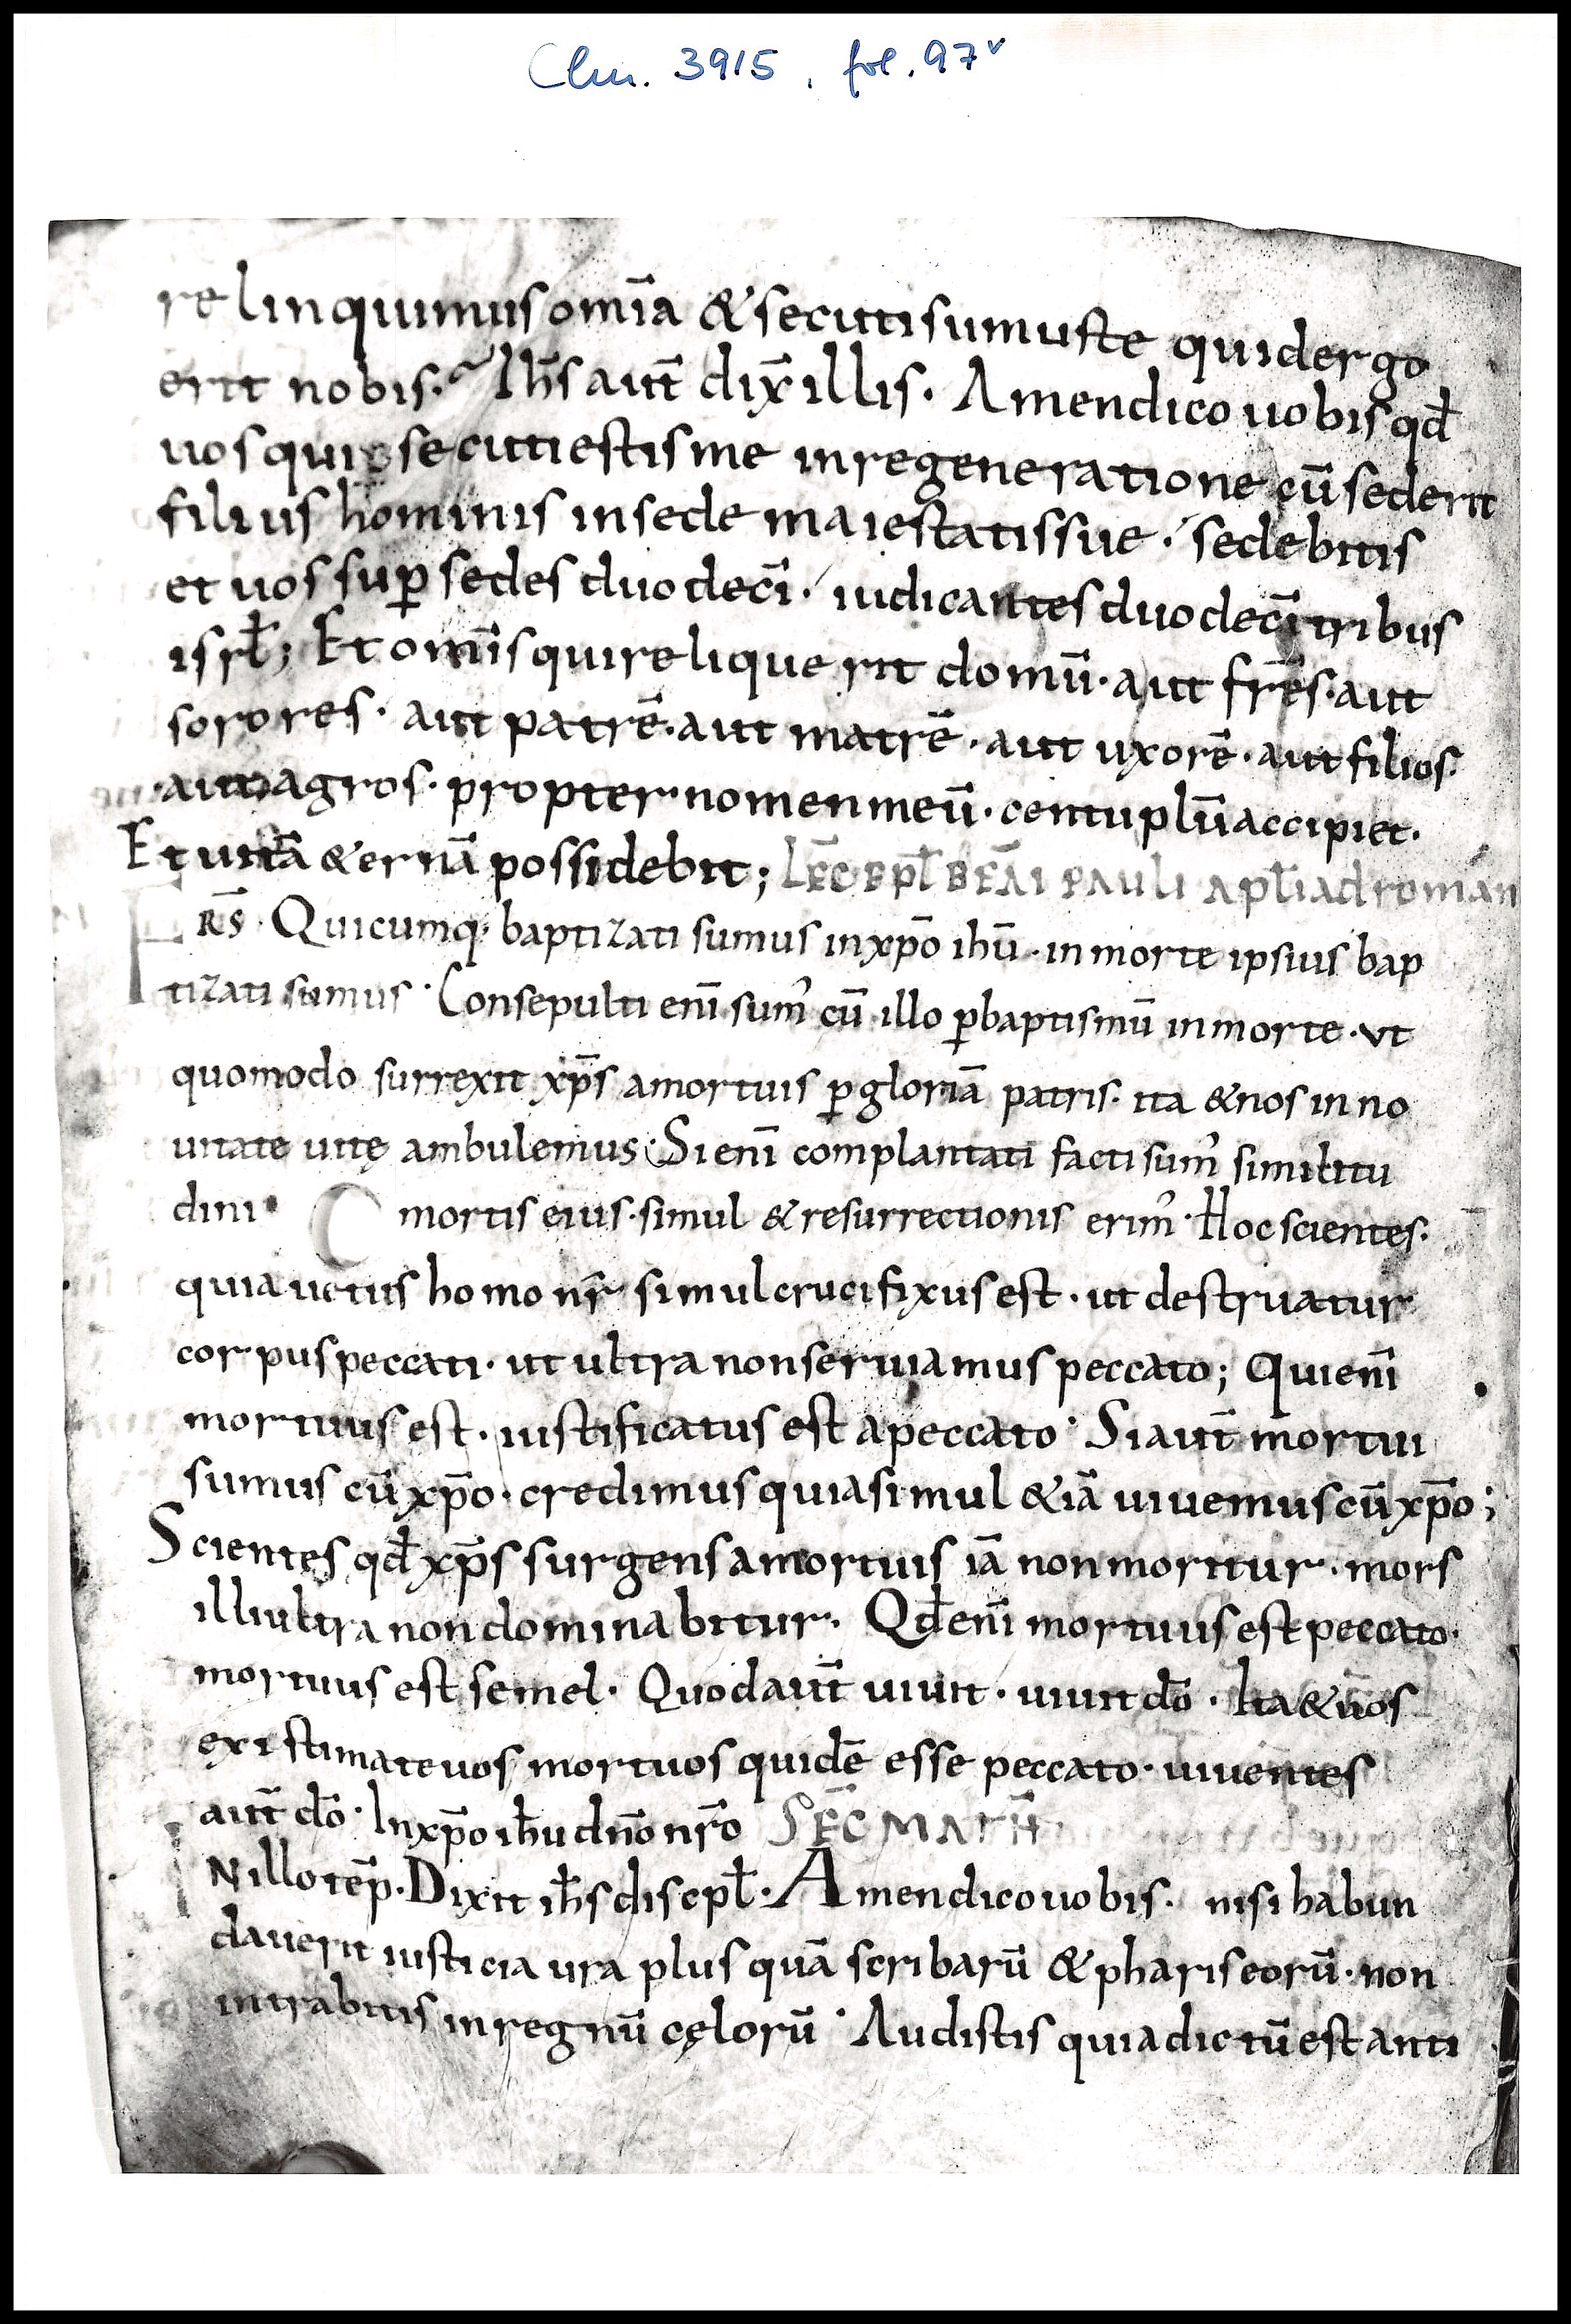 Clm. 3915, fol. 97v
relinquimus om̄ia & secuti sumus te quid ergo
erit nobis. Ih̄s aut̄ dix̄ illis. Amen dico uobis qd̄
uos qui secuti estis me in regeneratione cū sederit
filius hominis in sede maiestatis sue. sedebitis
et uos sup̲ sedes duodecī. iudicantes duodecī tribus
isrł; Et om̄is qui reliquerit domū. aut fr̄es. aut
sorores. aut patrē. aut matrē. aut uxorē. aut filios.
aut agros. propter nomen meū. centuplū accipiet.
Et uitā & ernā possidebit; LEC̄ EPł BEĀI PAULI APłI AD ROMAN
FRS̄. Quicumq; baptizati sumus in xp̄o ih̄u. in morte ipsius bap
tizati sumus. Consepulti enī sum' cū illo p̲ baptismū in morte. ut
quomodo surrexit xp̄s a mortuis p̲ gloriā patris. ita & nos in no
uitate uitę ambulemus. Si enī complantati facti sum' similitu
dini mortis eius. simul & resurrectionis erim'. Hoc scientes.
quia uetus homo nr̄ simul crucifixus est. ut destruatur
corpus peccati. ut ultra non seruiamus peccato; Qui enī
mortuus est. iustificatus est a peccato. Si aut̄ mortui
sumus cū xp̄o. credimus quia simul & iā uiuemus cū xp̄o;
Scientes qd̄ xp̄s surgens a mortuis iā non moritur. mors
illi ultra non dominabitur. Qd̄ enī mortuus est peccato.
mortuus est semel. Quod aut̄ uiuit. uiuit dō. Ita & uos
existimate uos mortuos quidē esse peccato. uiuentes
aut̄ dō. In xp̄o ih̄u dn̄o nr̄o SEC̄ MATH̄
IN illo tēp. Dixit ih̄s discpł. Amen dico uobis. nisi habun
dauerit iusticia ura plus quā scribarū & phariseorū. non
intrabitis in regnū cęlorū. Audistis quia dictū est anti